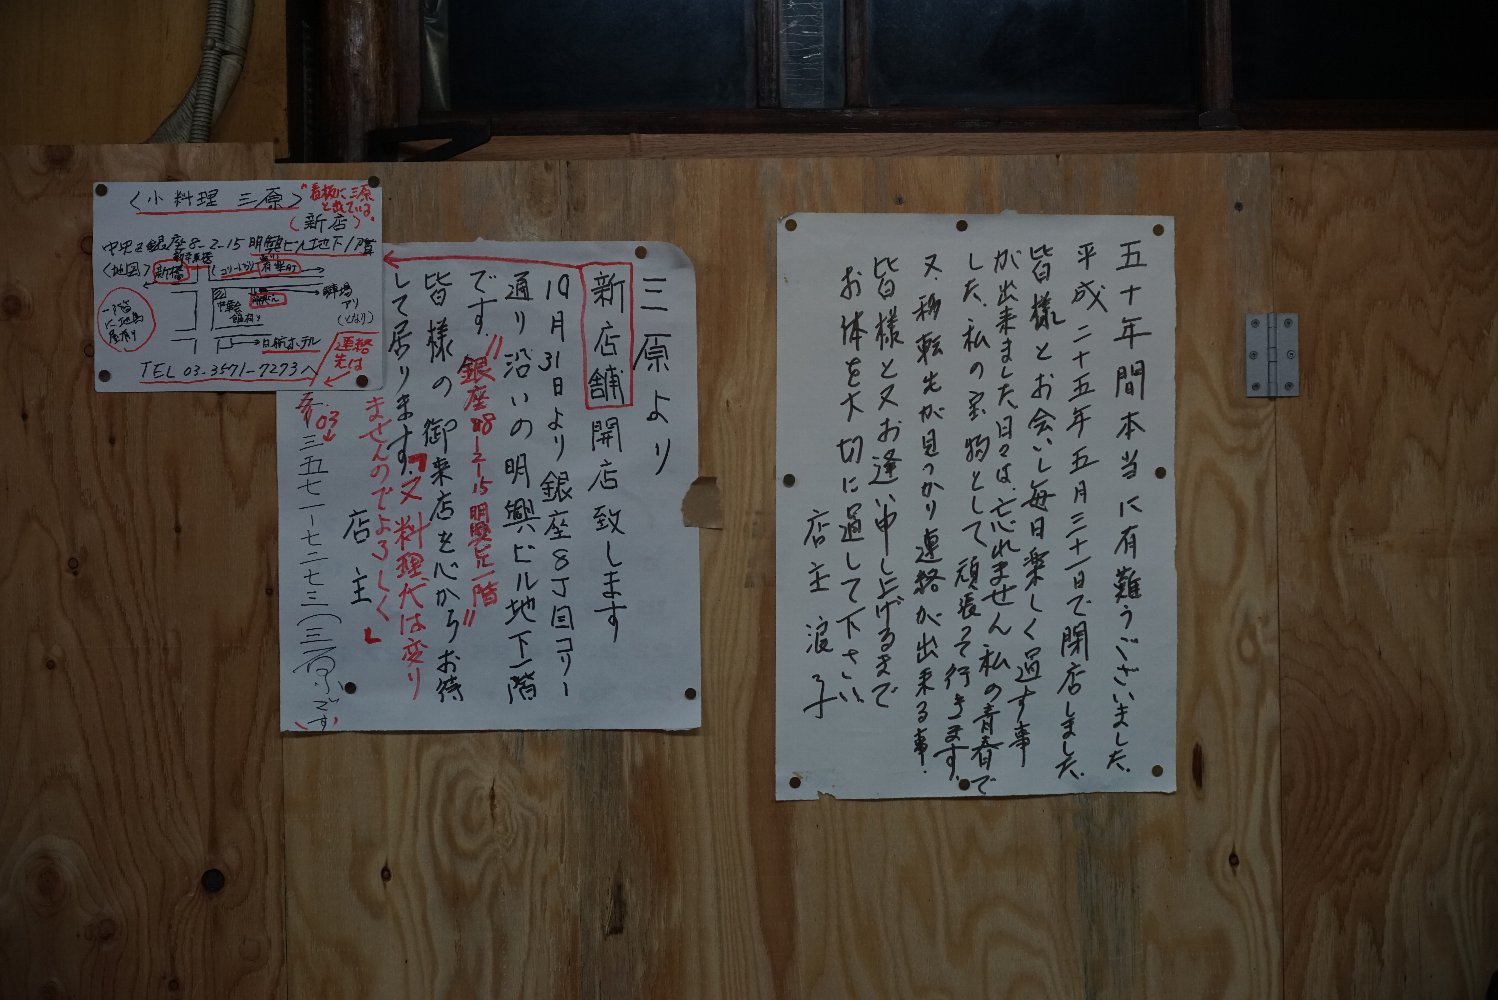 五十年間本当に有難うございました。
平成二十五年五月三十一日で閉店しました。
皆様とお会いし毎日楽しく過す事
が出来ました日々は、忘れません私の青春で
した、私の宝物として頑張って行きます。
又、移転先が見つかり連絡が出来る事.
皆様と又お逢い申し上げるまで
お体を大切に過して下さい、
店主 浪子
三原より
新店舗開店致します
10月31日より銀座8丁目コリー
通り沿いの明興ビル地下一階
です。〃銀座8-2-15明興ビ一階〃
皆様の御来店を心からお待
して居ります。「又料理代は変り
ませんのでよろしく」
店主
03
三五七一-七二七三(三原です)
〈小料理 三原〉
"看板に三原
と出ている。
(新店)
中央区銀座8-2-15明興ビル地下1階
〈地図〉
新橋
駐車場
アリ
(となり)
日航ホテル
連絡
先は
TEL 03-3571-7273へ